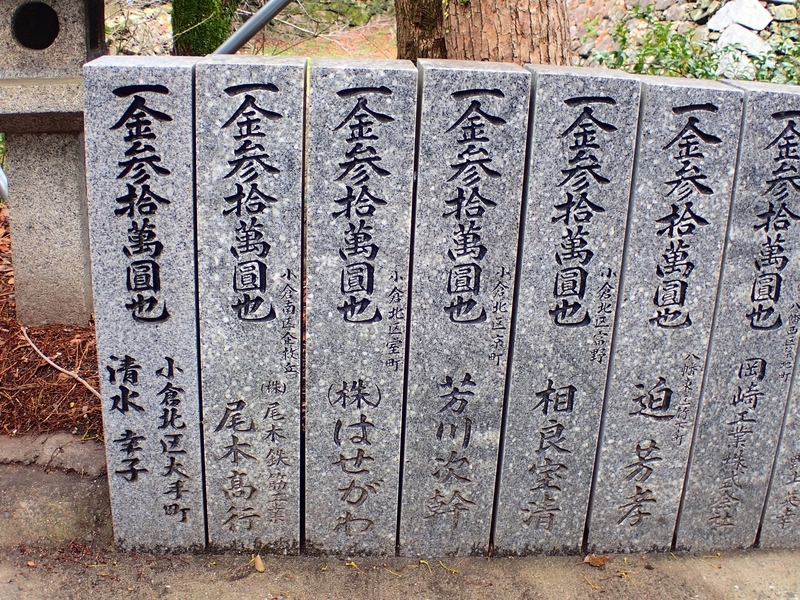 一金参拾萬圓也
小倉北区大手町
清水 幸子
一金参拾萬圓也
小倉南区企救丘
(株)尾木鉄筋工業
尾木高行
一金参拾萬圓也
小倉北区室町
(株)はせがわ
一金参拾萬圓也
芳川次幹
一金参拾萬圓也
小倉北区富野
相良室清
一金参拾萬圓也
迫 芳孝
一金参拾萬圓也
岡崎工業株式会社